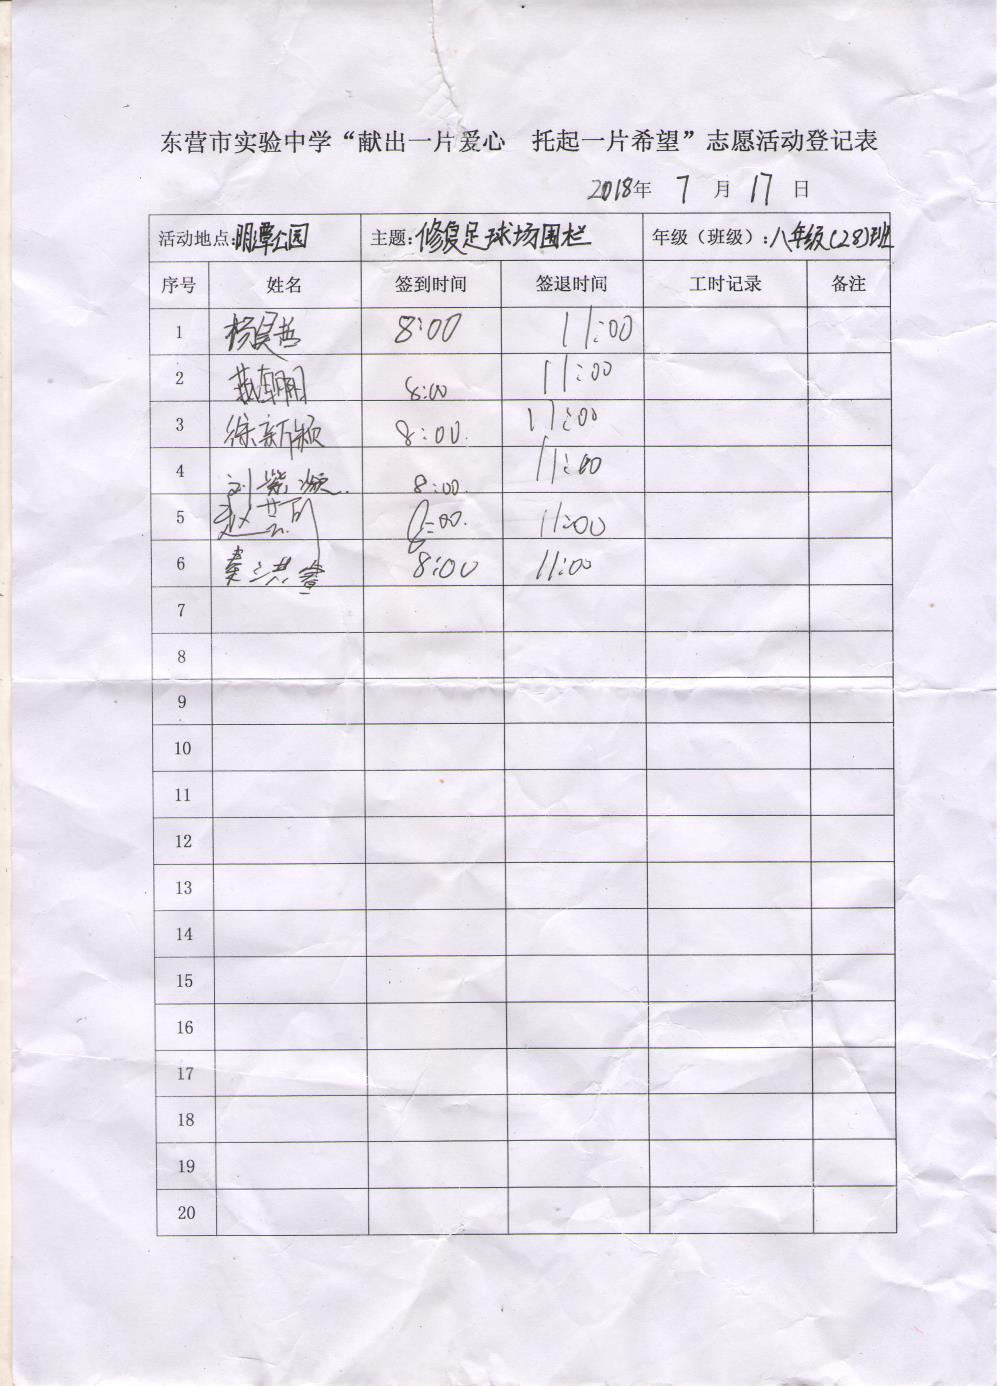 东营市实验中学“献出一片爱心 托起一片希望”志愿活动登记表
2018年 7 月 17 日
活动地点:明潭公园 主题:修复足球场围栏 年级（班级）:八年级(28)班
序号 姓名 签到时间 签退时间 工时记录 备注
1 杨昊哲 8:00 11:00
2 8:00 11:00
3 徐新颖 8:00. 11:00
4 刘紫颖.. 8:00. 11:00
5 赵 8:00. 11:00
6 秦洪睿 8:00 11:00
7
8
9
10
11
12
13
14
15
16
17
18
19
20